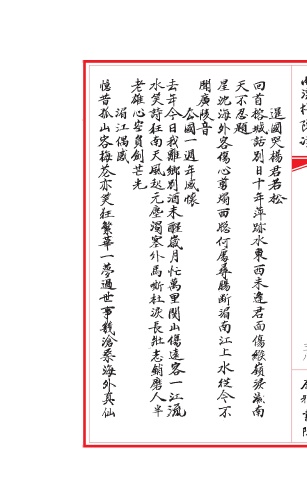 暹國哭楊君若松
回首榕城話別日十年萍跡水東西未逢君面傷緱嶺淚滴南
天不忍題
星沈海外客傷心剪燭西窗何處尋腸斷湄南江上水從今不
聞廣陵音
去國一週年感懷
去年今日我離鄉別酒未醒歲月忙萬里關山傷遠客一江風
水笑詩狂南天風起元塵濁塞外馬嘶杜淚長壯志銷磨人半
老雄心空負劍芒光
湄江偶感
憶昔孤山客梅花亦笑狂繁華一夢過世事幾滄桑海外真仙